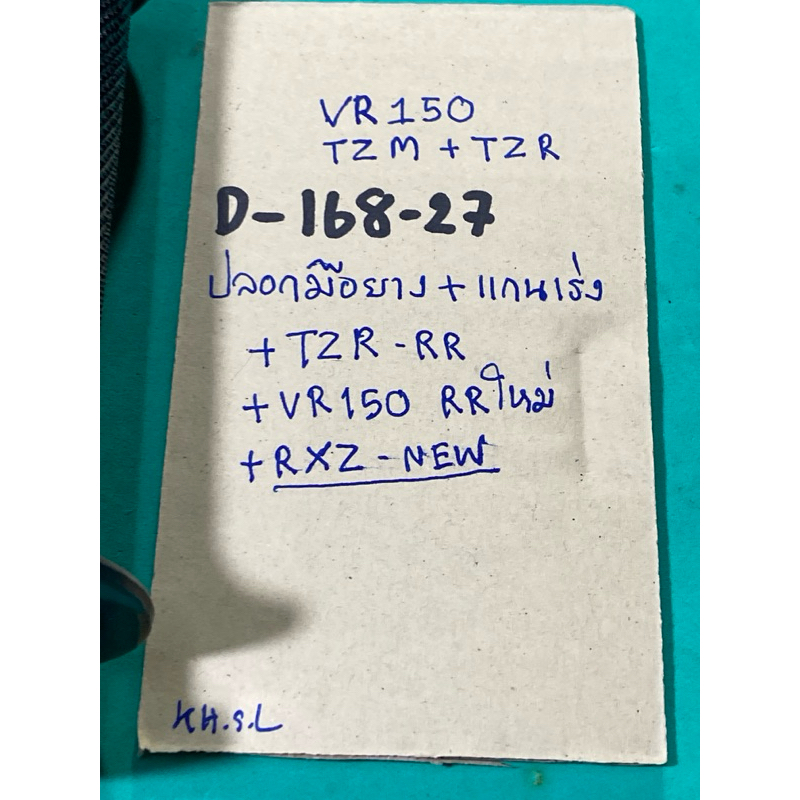 VR150
TZM + TZR
D-168-27
ปลอกมือยาง + แกนเร่ง
+ TZR - RR
+ VR150 RRใหม่
+ RXZ - NEW
KH.S.L